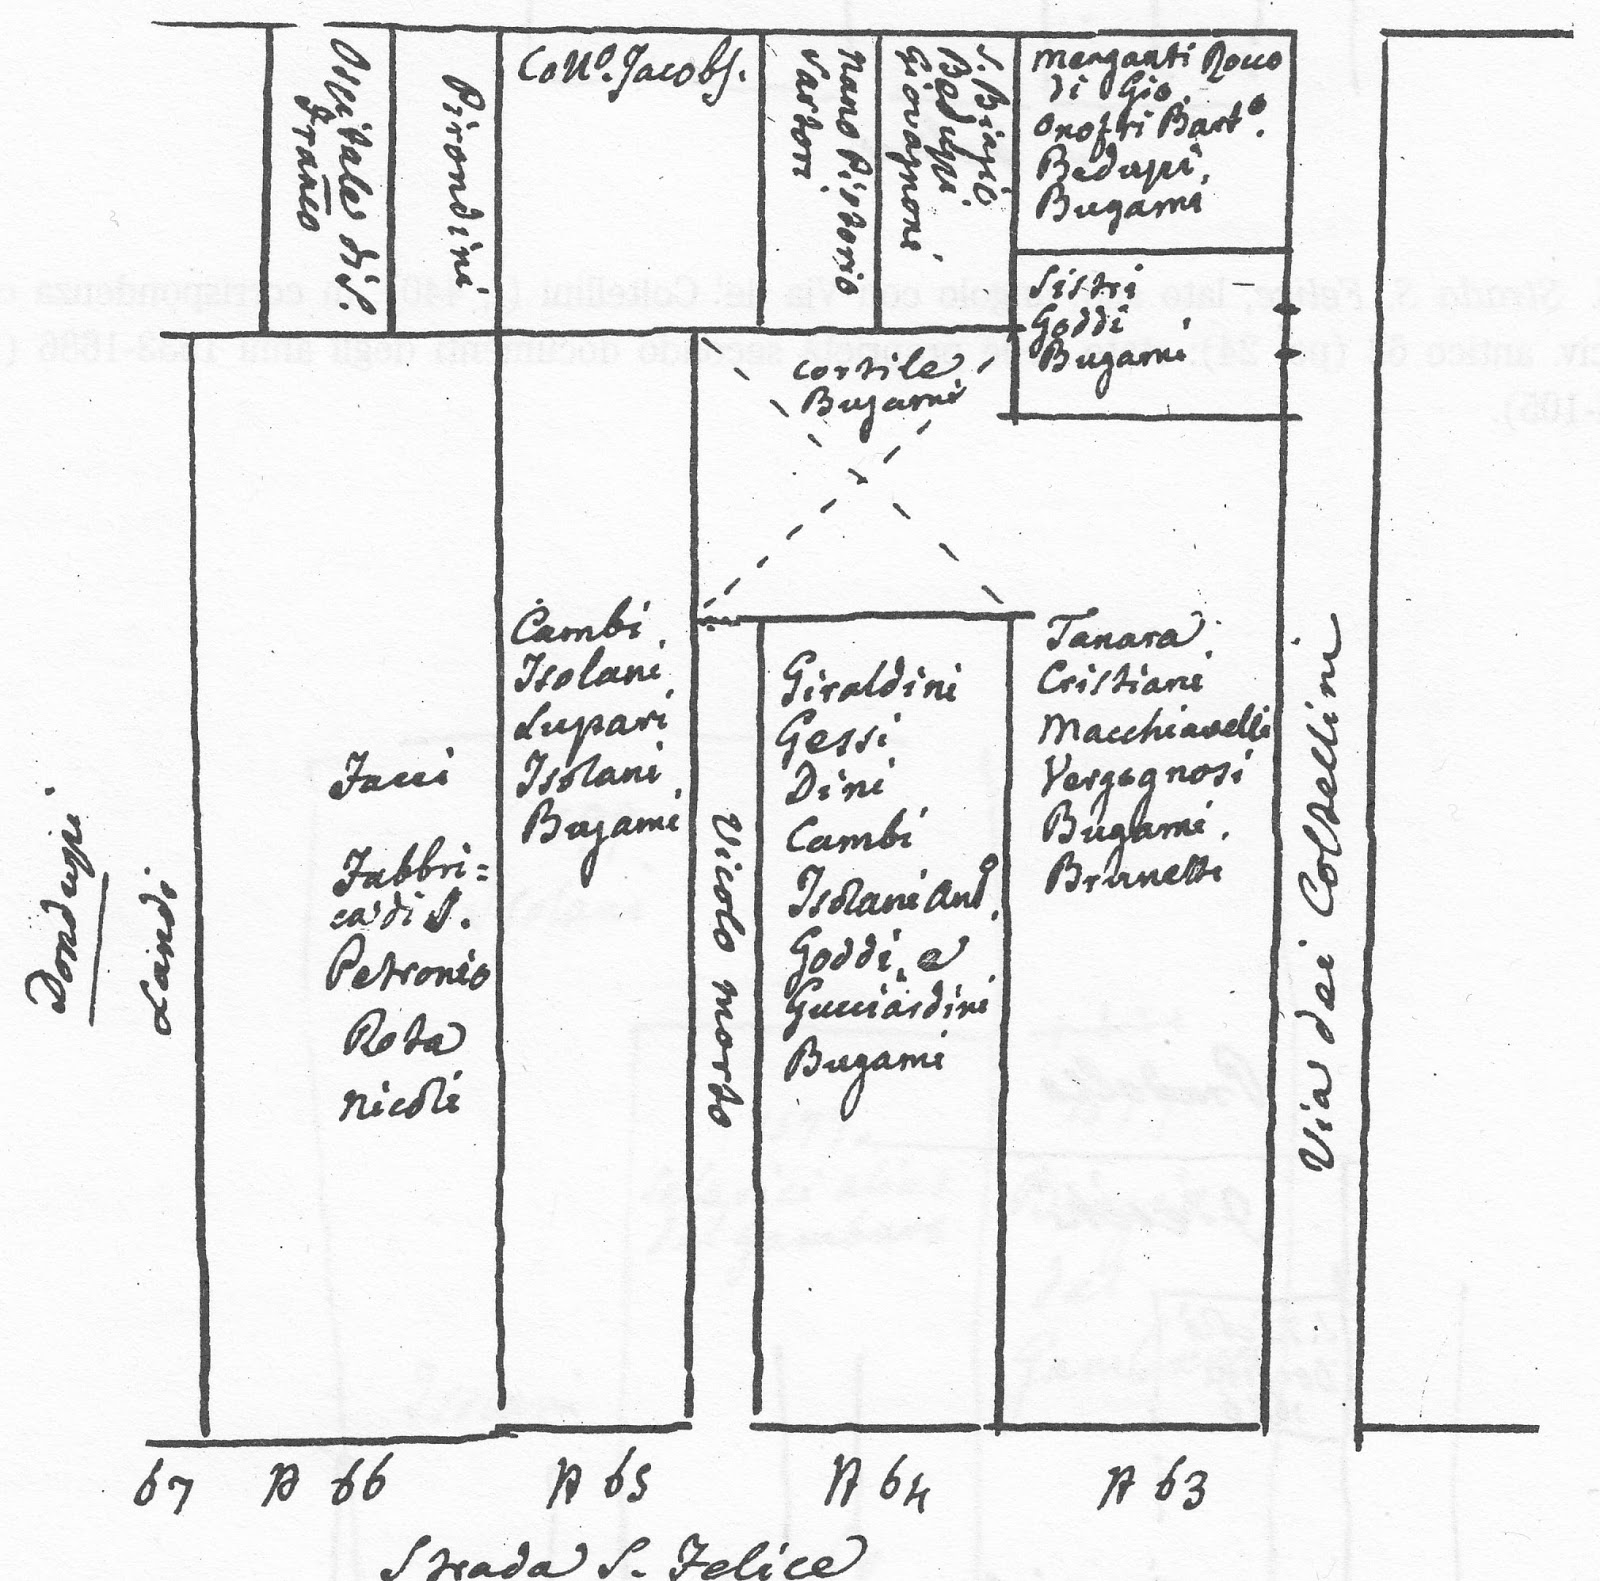 Ospitale di S.
Franco
Pirondini
Coll.o Jacobs.
Nano Pistorio
Sartori
S. Biagio
Beduzzi
Giovagnoni
Morganti Rocco
di Gio.
Onofri Bart.o
Beduzzi,
Bugami
Sistri
Goddi
Bugami
cortile
Bugami
Cambi,
Isolani
Lupari
Isolani
Bugami
Facci
Fabbri=
ca di S.
Petronio
Rota
Nicoli
Vicolo morto
Giraldini
Gessi
Dini
Cambi
Isolani Ant.o,
Goddi, e
Gucciardini
Bugami
Tanara
Cristiani
Macchiavelli
Vergognosi
Bugami,
Brunetti
Via dei Coltellini
Landi
67 N 66 N 65 N 64 N 63
Strada S. Felice